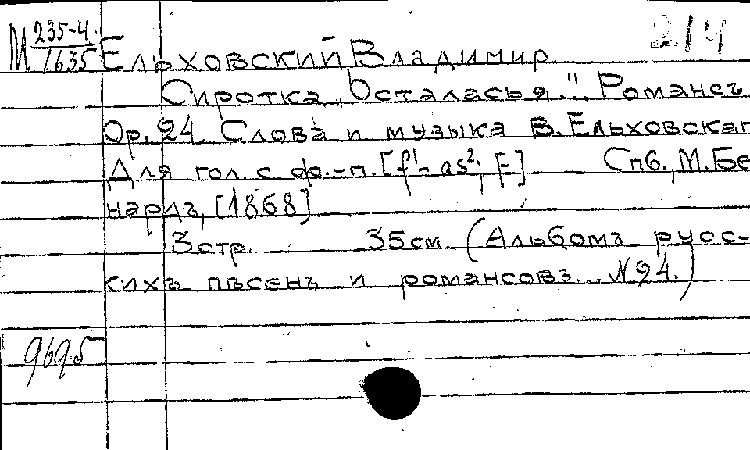 М 235-4
1635
Ельховский Владимир
214
Сиротка „Осталась я...". Романсъ
Ор. 24. Слова и музыка В. Ельховскаг
Для гол. с ф.-п. [f¹-as²; F] Спб., М. Бе
нардъ, [1868]
3 стр. 35 см. (Альбомъ русс-
кихъ пѣсенъ и романсовъ. №24.)
9695